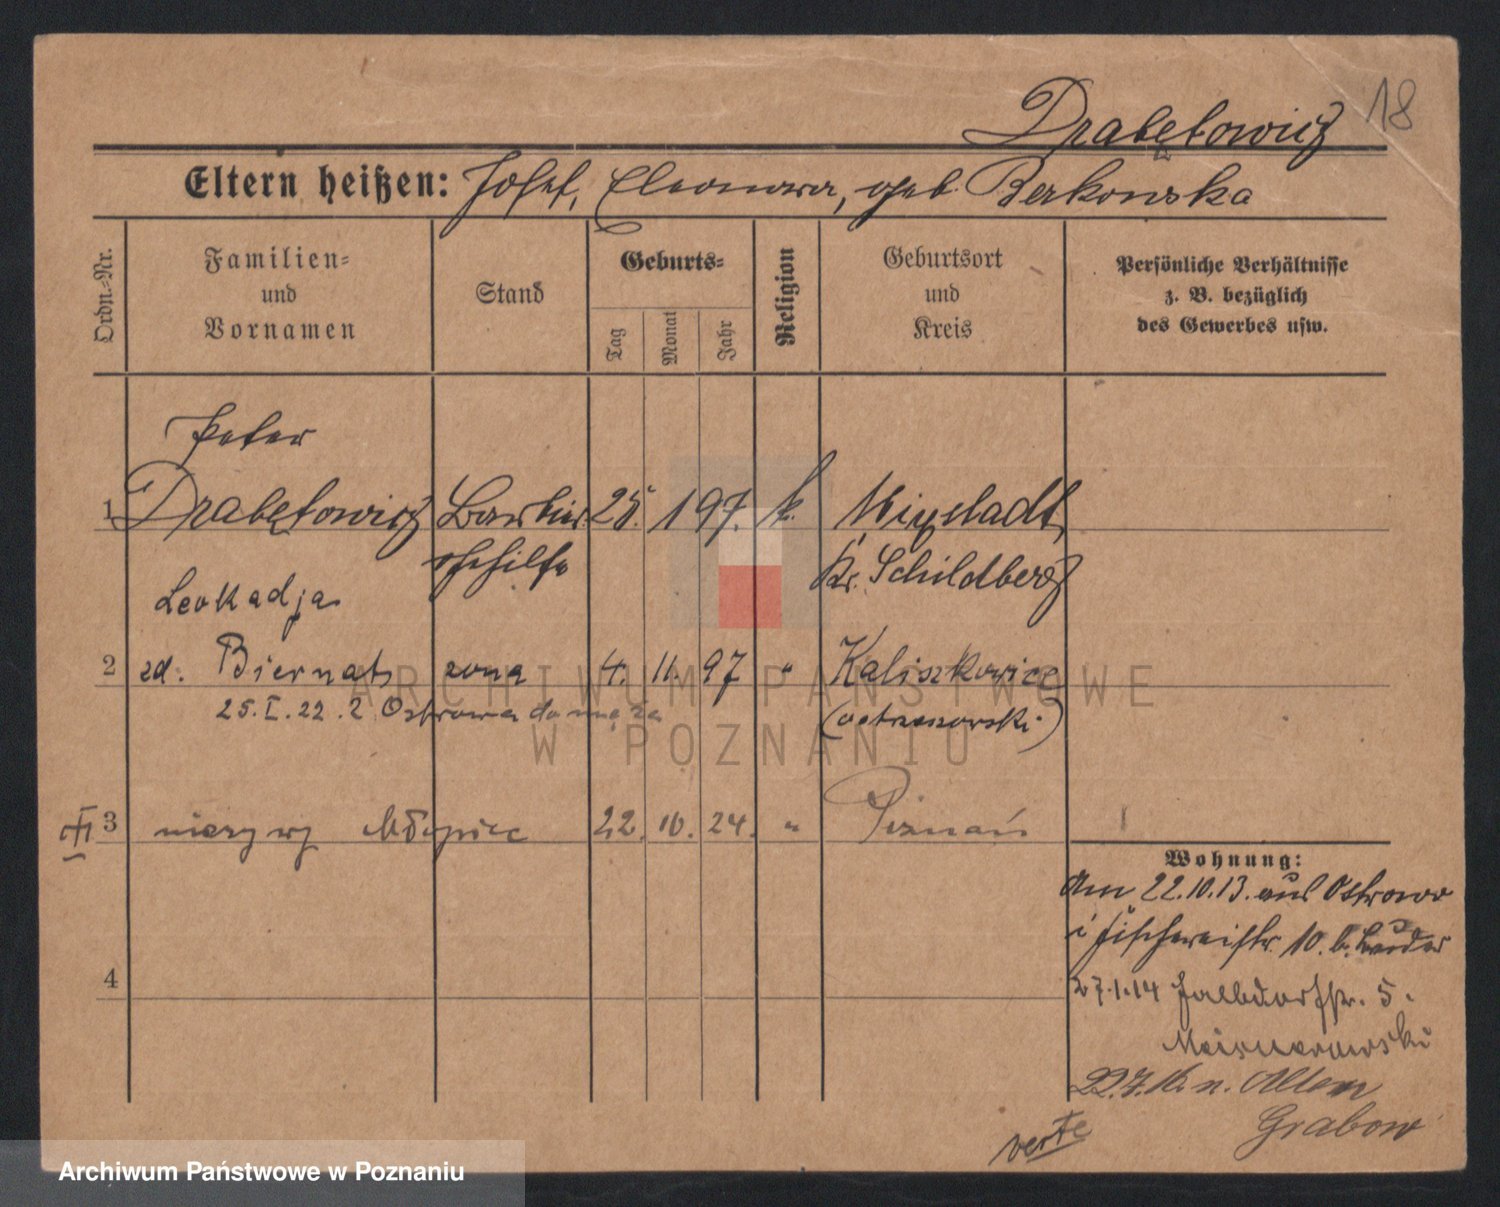 18
Drabętowicz
Eltern heißen: Josef, Eleonora, geb. Berkowska
Ordn.-Nr.
Familien-
und
Vornamen
Stand
Geburts-
Tag
Monat
Jahr
Religion
Geburtsort
und
Kreis
Persönliche Verhältnisse
z. B. bezüglich
des Gewerbes usw.
Peter
1 Drabętowicz Barbier 25. 1 97. k. Mixstadt,
gehilfe Kr. Schildberg
Leokadja
2 zd. Biernat żona 4. 11. 97 " Kaliszkowice
25.I.22. z Ostrowa do męża (ostrzeszowski)
3 nieżywy chłopiec 22. 10. 24. " Poznań
4
Wohnung:
Am 22.10.13. aus Ostrowo
i Fischereistr. 10. b.
27.1.14 5.
22.7. n.
Grabow
verte
ARCHIWUM PAŃSTWOWE
W POZNANIU
Archiwum Państwowe w Poznaniu